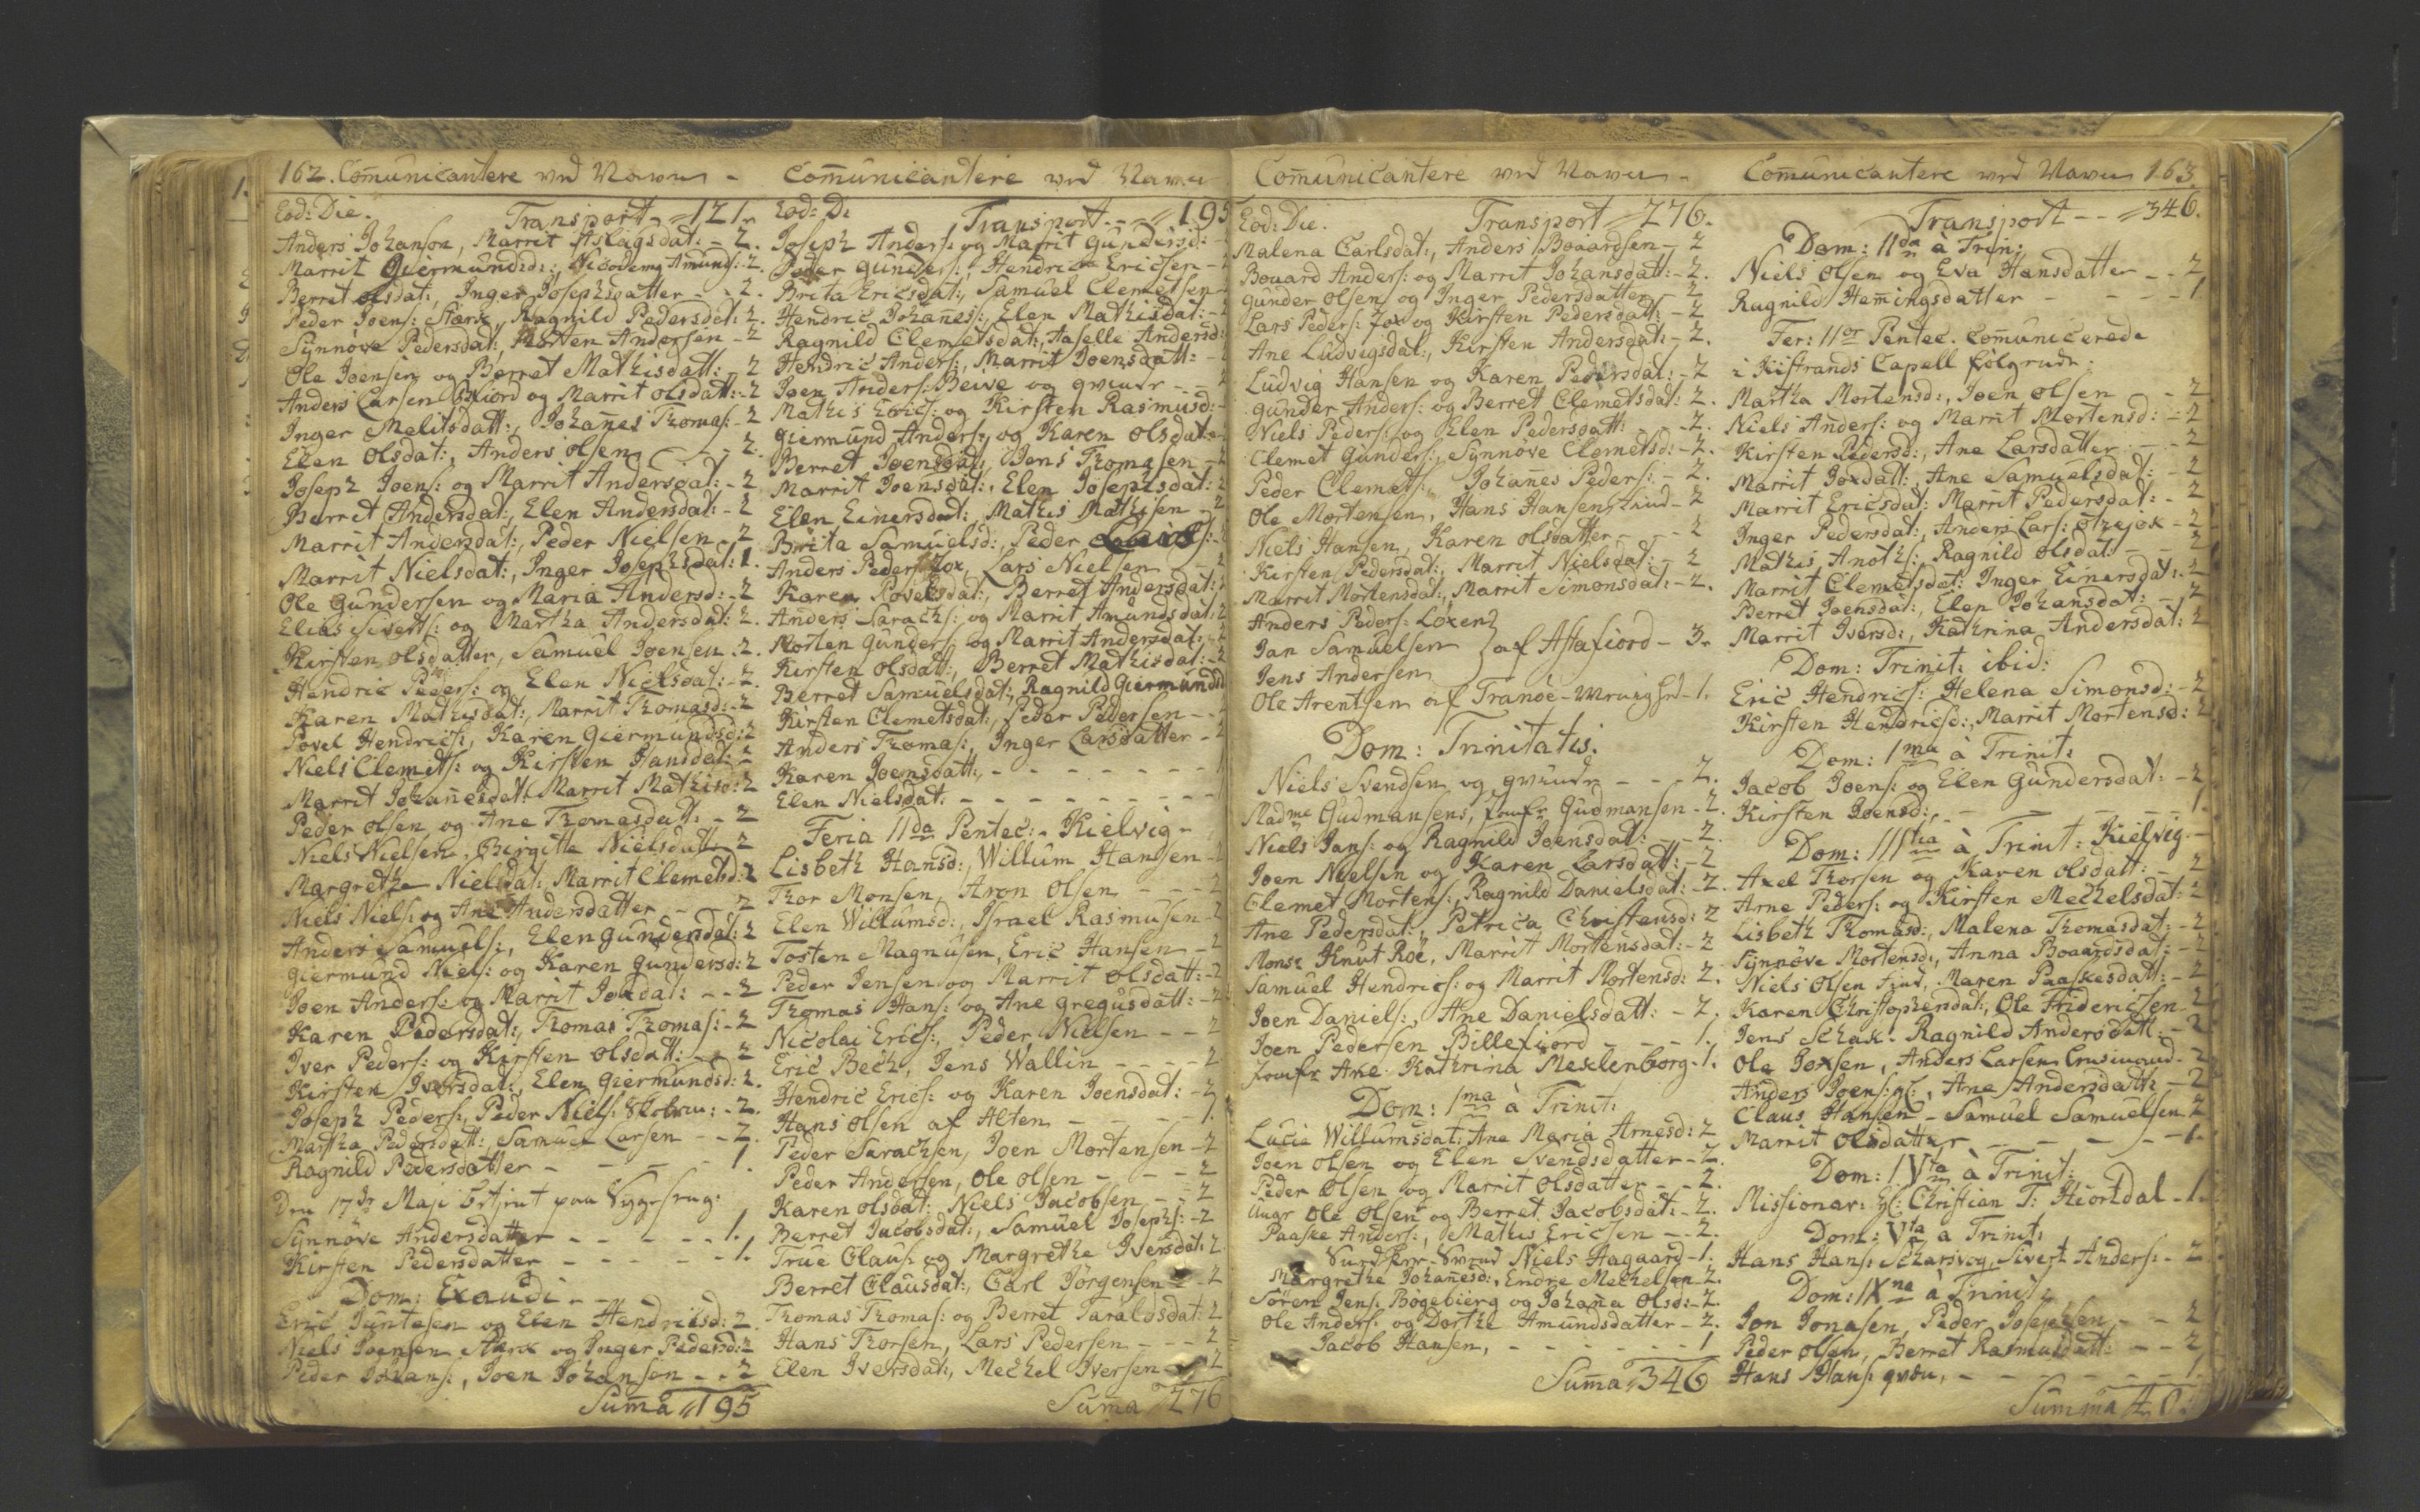 162. Com̄unicantere ved Navn -
Eod: Die. Transport - 121.
Anders Johanson, Marrit Aslagsdat: - 2.
Marrit Giermundsd:, Nicodemg Amunds: - 2.
Berret olsdat:, Inger Josephsdatter - - 2.
Peder Joens: Stærk, Ragnild Pedersdat: 2.
Synnøve Pedersdat:, Morten Andersen - 2
Ole Joensen og Berret Mathisdatt: - 2
Anders Larsen og Marrit olsdatt: - 2
Inger Melitsdatt:, Johan̄es Thomas: - 2
Elen Olsdat:, Anders olsen - - 2.
Joseph Joens: og Marrit Andersdat: - 2
Berret Andersdat:, Elen Andersdat: - 2
Marrit Andersdat:, Peder Nielsen - 2
Marrit Nielsdat:, Inger Josephsdat: 1.
Ole Gundersen og Maria Andersd: - 2
Elias Siverts: og Martha Andersdat: 2.
Kirsten olsdatter, Samuel Joensen - 2.
Hendric Peders: og Elen Nielsdat: - 2.
Karen Mathisdat:, Marrit Thomasd: - 2
Povel Hendrics:, Karen Giermundsd: 2
Niels Clemets: og Kirsten Hansdat: -
Marrit Johan̄esdat: Marrit Mathisd: 2
Peder olsen og Ane Thomasdatt: - 2
Niels Nielsen, Birgitta Nielsdatt - 2
Margrethe Nielsdat:, Marrit Clemetsd: 2
Niels Niels: og Ane Andersdatter - - 2
Anders Samuels:, Elen Gundersdat: 2
Giermund Niels: og Karen Gundersd: 2
Joen Anders: og Marrit Joxdat: - - 2
Karen Pedersdat:, Thomas Thomas: - 2
Iver Peders: og Kirsten olsdatt: - - 2
Kirsten Iversdat:, Elen Giermundsd: 2.
Joseph Peders:, Peder Niels: - 2.
Martha Pedersdatt:, Samuel Larsen - - 2.
Ragnild Pedersdatter - - - - 1.
Den 17de Maji
Synnøve Andersdatter - - - - 1.
Kirsten Pedersdatter - - - - 1.
Dom: Exaudi -
Eric Juntesen og Elen Hendricsd: 2.
Niels Joensen Stærk og Inger Pedersd: 2
Peder Johans:, Joen Johansen - - 2
Sum̄a 195
Com̄unicantere ved Navn
Eod: D: Transport - - 195
Joseph Anders: og Marrit Gundersd: -
Peder Gunders:, Hendric Ericsen - 2
Brita Ericsdat:, Samuel Clemetsen -
Hendric Johan̄es:, Elen Mathisdat: - 2
Ragnild Clemetsdat:, Aaselle Andersd:
Hendric Anders:, Marrit Joensdatt: -
Joen Anders: Beive og qvinde - - 2
Mathis Erics: og Kirsten Rasmusd: -
Giermund Anders: og Karen olsdat:
Berret Joensdat:, Jens Thomasen - 2
Marrit Joensdat:, Elen Josephsdat: 2
Elen Einersdat:, Mathis Mathisen - 2
Brita Samuelsd:, Peder
Anders Peders: Jox, Lars Nielsen - 2
Karen Povelsdat:, Berret Andersdat: 2
Anders Sarachs: og Marrit Amundsdat: 2
Morten Gunders: og Marrit Andersdat: - 2
Kirsten olsdatt:, Berret Mathisdat: - 2
Berret Samuelsdat:, Ragnild Giermundsd
Kirsten Clemetsdat:, Peder Pedersen - - 2
Anders Thomas:, Inger Larsdatter - 2
Karen Joensdatt: - - - - - - - 1
Elen Nielsdat: - - - - - - - -
Feria IIda Pentec: - Kielvig -
Lisbeth Hansd:, Willum Hansen - 2
Thor Monsen, Aron Olsen - - - 2
Elen Willumsd:, Israel Rasmusen - 2
Tosten Magnusen, Eric Hansen - 2
Peder Jensen og Marrit olsdatt: - 2
Thomas Hans: og Ane Gregusdatt: - 2
Nicolai Erics:, Peder Nielsen - - 2
Eric Bech, Jens Wallin - - - 2
Hendric Erics: og Karen Joensdat: - 2
Hans olsen af Alten - - - - 1.
Peder Sarachsen, Joen Mortensen - 2
Peder Andersen, Ole olsen - - - 2
Karen olsdat: Niels Jacobsen - - 2
Berret Jacobsdat:, Samuel Josephs: - 2
True Claus: og Margrethe Iversdat: 2
Berret Clausdat:, Carl Jørgensen - 2
Thomas Thomas: og Berret Taraldsdat: 2
Hans Thorsen, Lars Pedersen - - 2
Elen Iversdat:, Mechel Iversen - 2
Sum̄a 276
Com̄unicantere ved Navn -
Eod: Die. Transport 276.
Malena Carlsdat:, Anders Boaardsen - 2
Bouard Anders: og Marrit Johansdatt: - 2.
Gunder olsen og Inger Pedersdatter - 2
Lars Peders: Jox og Kirsten Pedersdat: - 2
Ane Ludvigsdat:, Kirsten Andersdat: - 2.
Ludvig Hansen og Karen Pedersdat: - 2
Gunder Anders: og Berret Clemetsdat: 2.
Niels Peders: og Elen Pedersdatt: - - 2.
Clemet Gunders:, Synnøve Clemetsd: - 2.
Peder Clemets:, Johan̄es Peders: - 2.
Ole Mortensen, Hans Hansen Lind - 2
Niels Hansen, Karen olsdatter - - - 2
Kirsten Pedersdat:, Marrit Nielsdat: - 2
Marrit Mortensdat:, Marrit Simonsdat: - 2.
Anders Peders: Loxen
Jan Samuelsen } af Astafiord - 3.
Jens Andersen
Ole Arentsen af Tranöe - 1.
Dom: Trinitatis.
Niels Svendsen og qvinde - - - 2.
Madme Gudmansens, Jomfr Gudmansen - 2.
Niels Jans: og Ragnild Joensdat: - - 2.
Joen Nielsen og Karen Larsdatt: - 2
Clemet Mortens:, Ragnild Danielsdat: - 2.
Ane Pedersdat:, Petrica Christensd: 2
Monsr Knut Röe, Marrit Mortensdat: - 2
Samuel Hendrics: og Marrit Mortensd: 2.
Joen Daniels:, Ane Danielsdatt: - 2.
Joen Pedersen Billefiord - - - 1.
Jomfr Ane Kathrina Meklenborg - 1.
Dom: 1ma à Trinit:
Lucie Willumsdat: Ane Maria Arnesd: 2
Joen olsen og Elen Svendsdatter - 2.
Peder Olsen og Marrit olsdatter - - 2.
Ole Olsen og Berret Jacobsdat: - 2.
Paaske Anders:, Mathis Ericsen - - 2.
Niels Aagaard - 1.
Margrethe Johan̄esd:, Endre Mechelsen - 2.
Sören Jens: Bögebierg og Johan̄a Olsd: - 2.
Ole Anders: og Dorthe Amundsdatter - 2.
Jacob Hansen, - - - - - - 1
Sum̄a 346
Com̄unicantere ved Navn 163
Transport - - 346.
Dom: 11da à Trin:
Niels Olsen og Eva Hansdatter - - 2
Ragnild Hem̄ingsdatter - - - - 1.
Fer: 11or Pentec. Com̄unicerede
i Kistrands Capell følgende:
Martha Mortensd:, Joen olsen - 2
Niels Anders: og Marrit Mortensd: - 2
Kirsten Pedersd:, Ane Larsdatter - - - 2
Marrit Joxdatt:, Ane Samuelsdat: - 2
Marrit Ericsdat: Marrit Pedersdat: - 2
Inger Pedersdat:, Anders Lars: otzejok - 2
Mathis Anoths: Ragnild olsdat: - - 2
Marrit Clemetsdat: Inger Einersdat: 2
Berret Joensdat:, Elen Johansdat: - 2
Marrit Iversd:, Kathrina Andersdat: 2
Dom: Trinit: ibid:
Eric Hendrics: Helena Simonsd: - 2
Kirsten Hendricsd:, Marrit Mortensd: 2
Dom: 1ma à Trinit:
Jacob Joens: og Elen Gundersdat: - 2
Kirsten Joensd:, - - - - - 1.
Dom: IIItia à Trinit: Kielvig -
Axel Thorsen og Karen olsdatt: - 2
Arne Peders: og Kirsten Mechelsdat: 2
Lisbeth Thomasd:, Malena Thomasdat: - 2
Synnøve Mortensd:, Anna Boaardsdat: - 2
Niels Olsen Find, Maren Paaskesdatt: - 2
Karen Christophersdat:, Ole Fridericsen 2
Jens Schak. Ragnild Andersdatt: - 2
Ole Joxsen, Anders Larsen - 2
Anders Joens:, Ane Andersdatt: - 2
Claus Hansen - Samuel Samuelsen 2
Marrit olsdatter - - - - - 1.
Dom: IVta à Trinit:
Missionar: Hr: Christian T: Hiortdal - 1.
Dom: Vta a Trinit:
Hans Hans: Scharsvog, Sivert Anders: - 2
Dom: IXna à Trinit:
Jon Jonasen, Peder Josephsen - - 2
Peder olsen, Berret Rasmusdatt: - - 2
Hans Hans: - - - - - 1
Summa 40